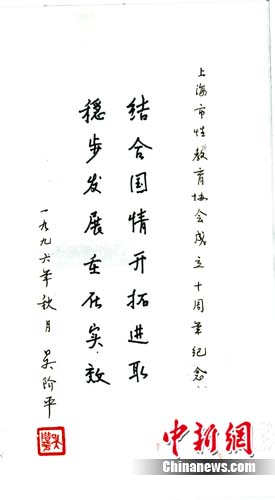 上海市性教育协会成立十周年纪念
结合国情开拓进取
穩步发展重在实效
一九九六年秋月 吴阶平
中新網
Chinanews.com